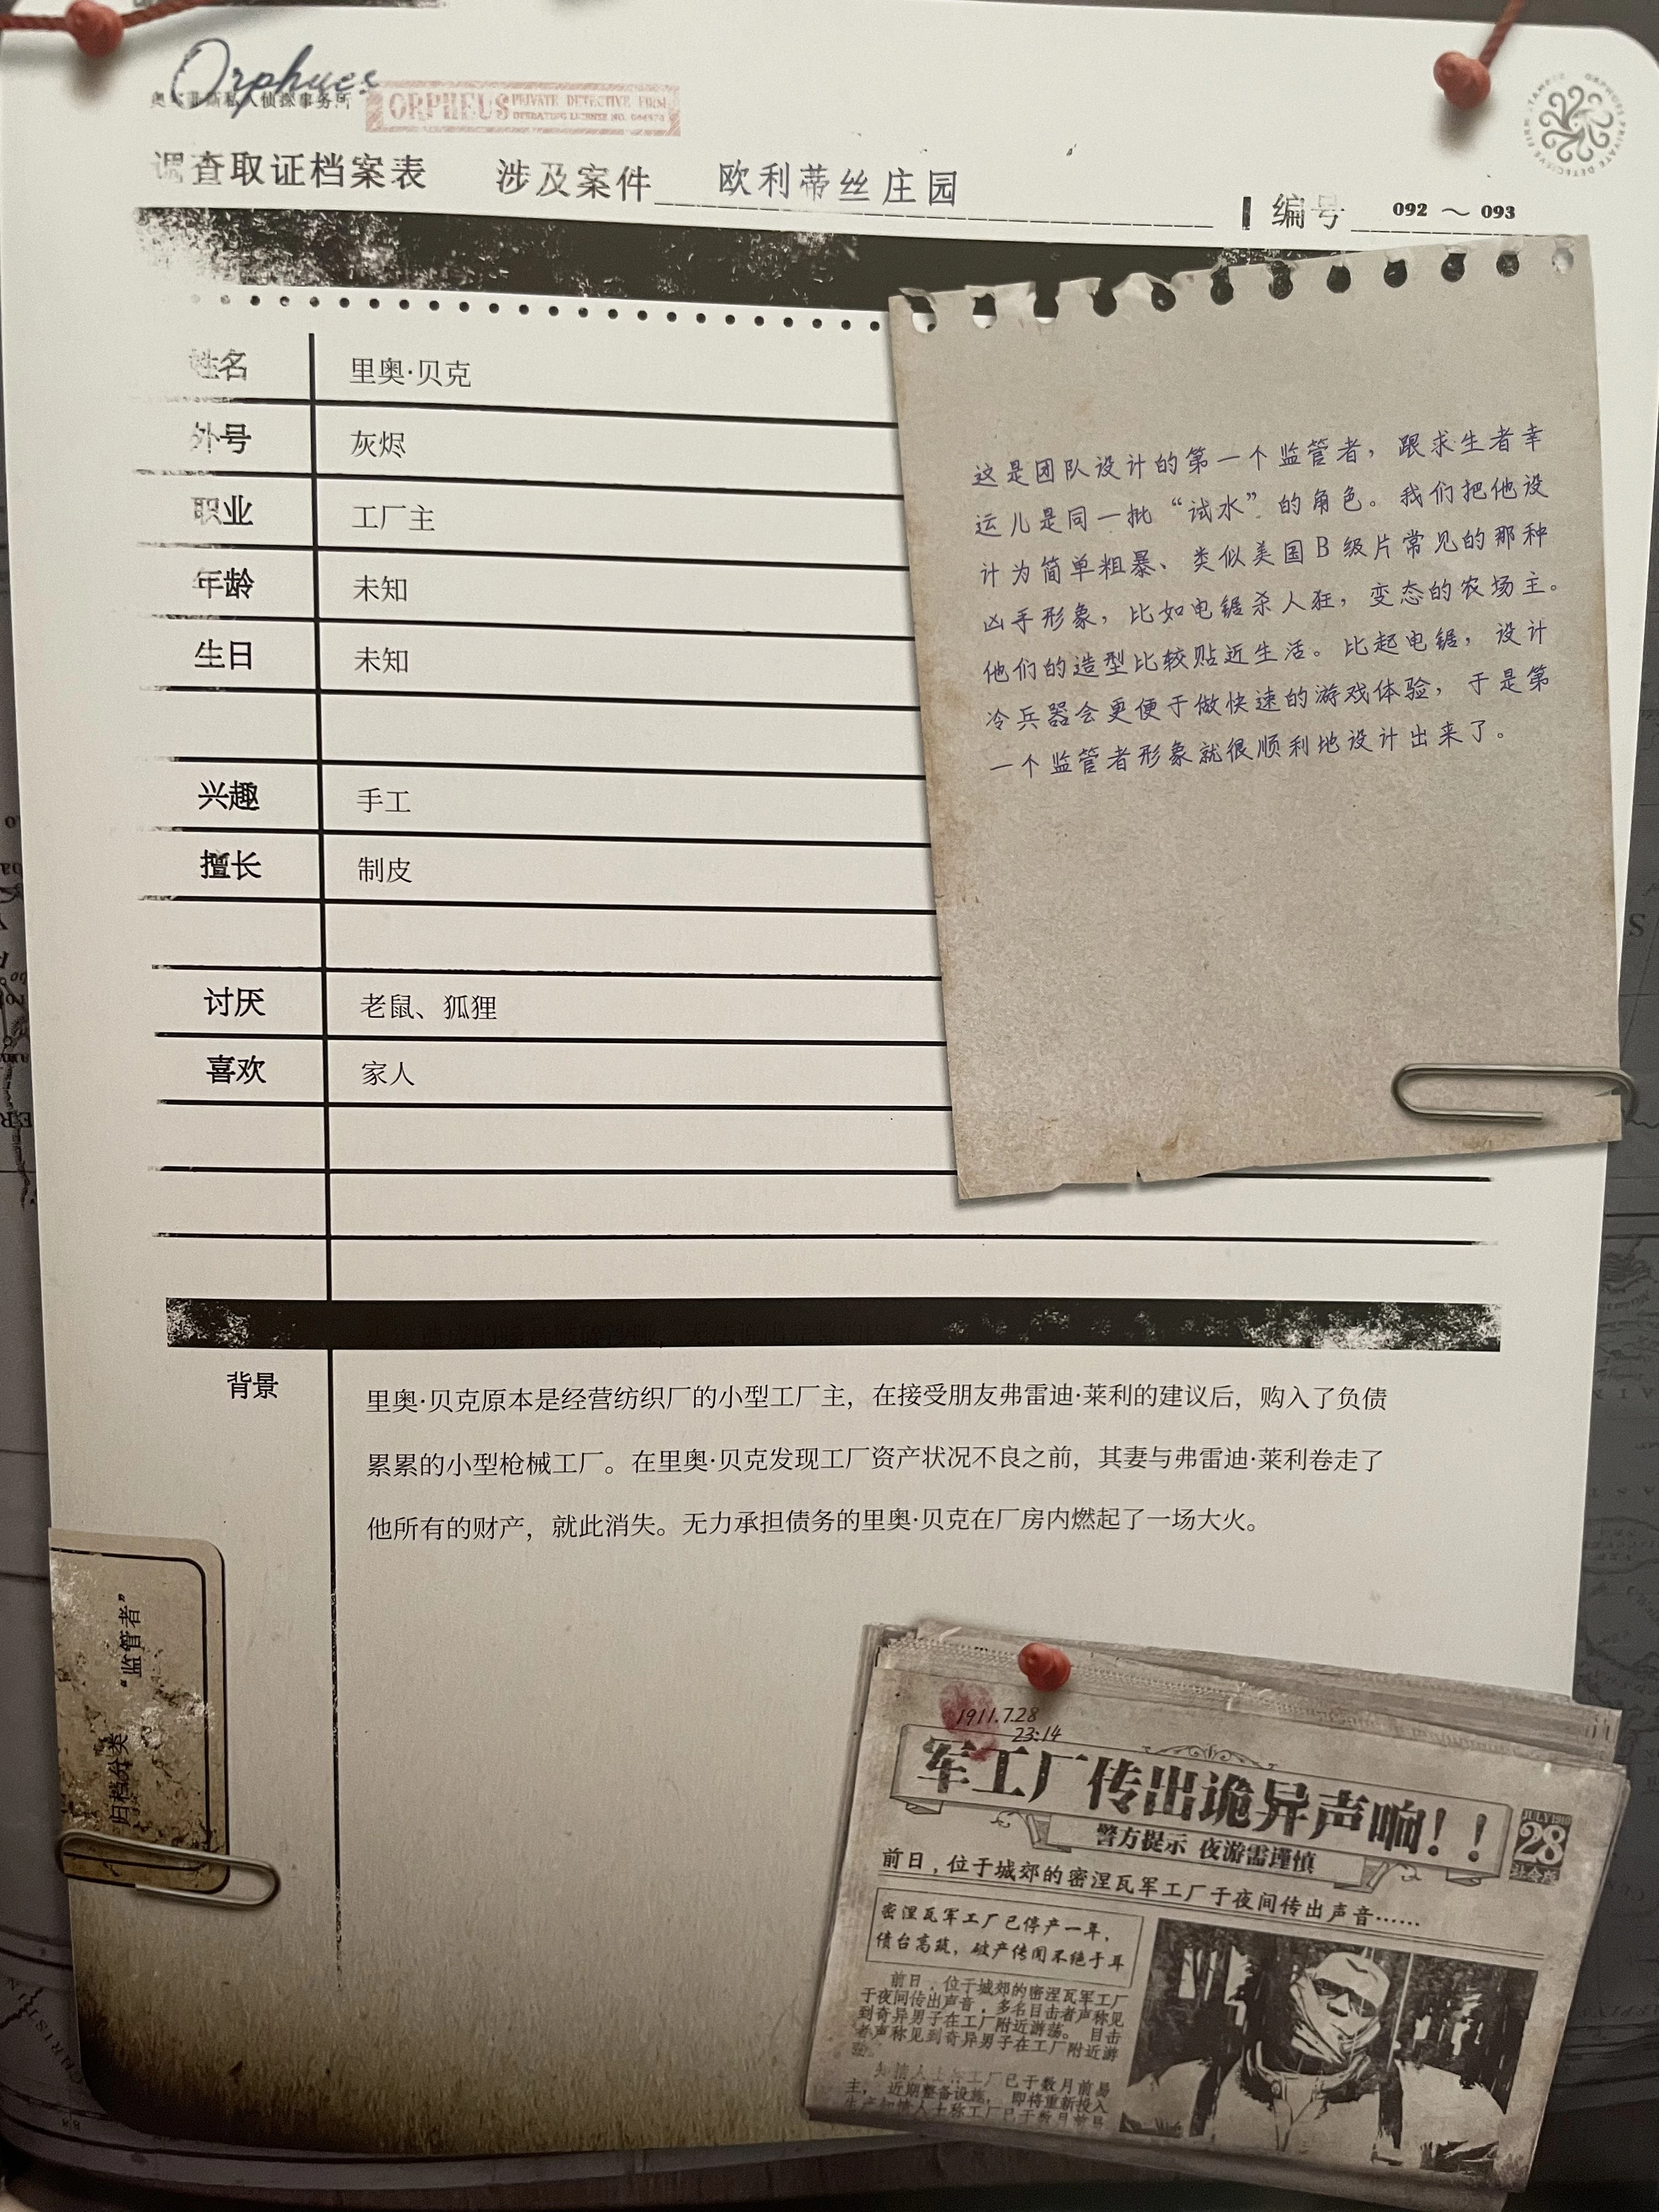 Orpheus
奥尔菲斯私人侦探事务所
ORPHEUS PRIVATE DETECTIVE FIRM
OPERATING LICENSE NO.
调查取证档案表 涉及案件 欧利蒂丝庄园
编号 092 ~ 093
姓名 里奥·贝克
外号 灰烬
职业 工厂主
年龄 未知
生日 未知
兴趣 手工
擅长 制皮
讨厌 老鼠、狐狸
喜欢 家人
这是团队设计的第一个监管者，跟求生者幸
运儿是同一批“试水”的角色。我们把他设
计为简单粗暴、类似美国B级片常见的那种
凶手形象，比如电锯杀人狂，变态的农场主。
他们的造型比较贴近生活。比起电锯，设计
冷兵器会更便于做快速的游戏体验，于是第
一个监管者形象就很顺利地设计出来了。
背景
里奥·贝克原本是经营纺织厂的小型工厂主，在接受朋友弗雷迪·莱利的建议后，购入了负债
累累的小型枪械工厂。在里奥·贝克发现工厂资产状况不良之前，其妻与弗雷迪·莱利卷走了
他所有的财产，就此消失。无力承担债务的里奥·贝克在厂房内燃起了一场大火。
归档分类 “监管者”
1911.7.28
23:14
军工厂传出诡异声响！！
警方提示 夜游需谨慎
28
前日，位于城郊的密涅瓦军工厂于夜间传出声音……
密涅瓦军工厂已停产一年，
债台高筑，破产传闻不绝于耳
前日，位于城郊的密涅瓦军工厂
于夜间传出声音，多名目击者声称见
到奇异男子在工厂附近游荡。目击
者声称见到奇异男子在工厂附近游
知情人士称工厂已于数月前易
主，近期整备设施，即将重新投入
生产知情人士称工厂已于数月前易